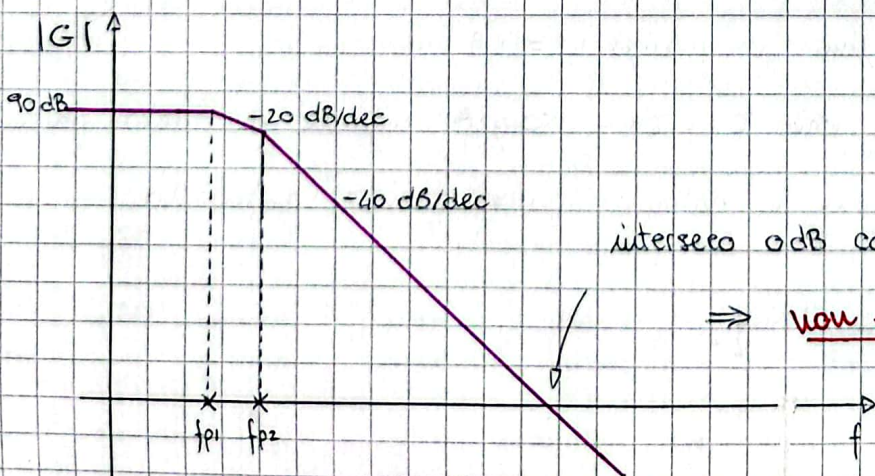 |G|
90 dB
-20 dB/dec
-40 dB/dec
interseco 0 dB
⇒ non
fp1 fp2
f